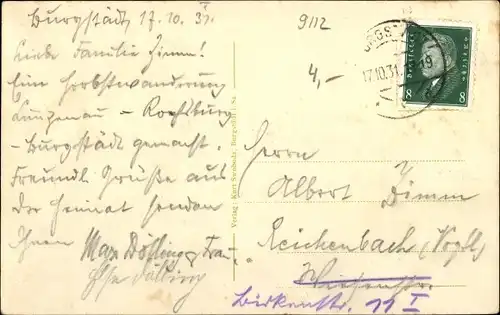 Burgstädt, 17.10.31.
Liebe Familie Dimm!
Eine Herbstwanderung
Lunzenau - Rochsburg
- Burgstädt gemacht.
Freundl. Grüße aus
der Heimat senden
Ihnen Max Dölling & Frau
Else Dölling
Verlag: Kurt Swoboda, Burgstädt i. Sa.
9112
4,-
17.10.31.
Deutsches Reich
8 8
Herrn
Albert Dimm
Reichenbach (Vogtl)
Wiesenstr.
Birkenstr. 11 I